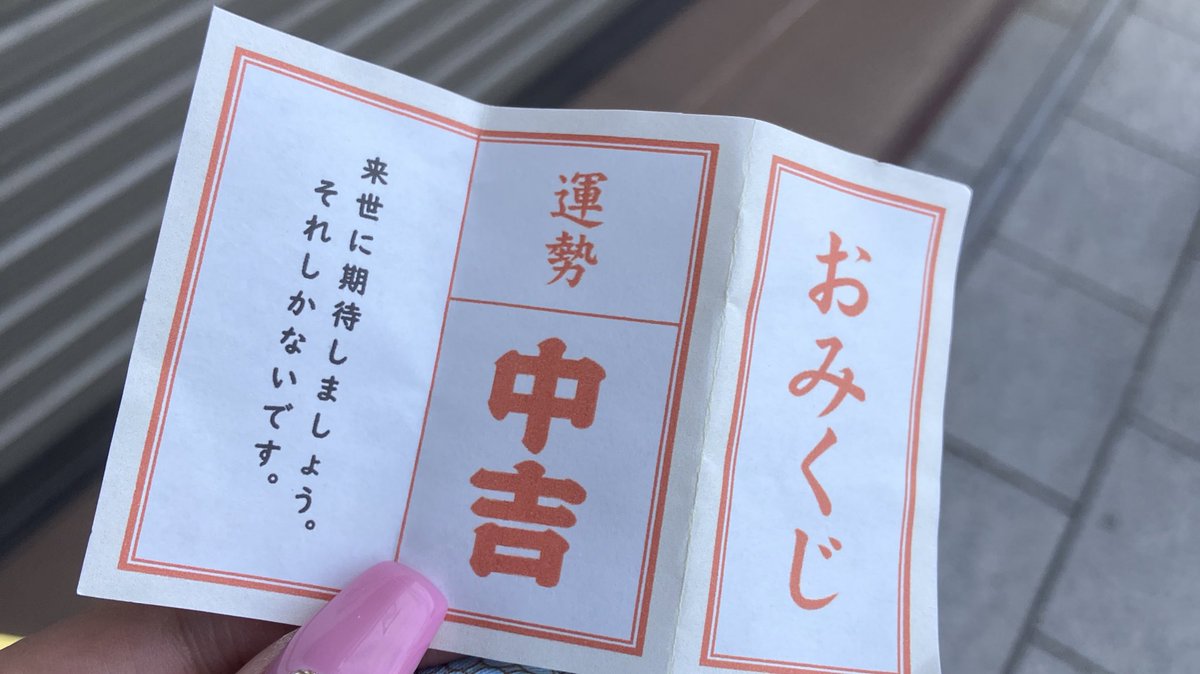 おみくじ
運勢
中吉
来世に期待しましょう。
それしかないです。